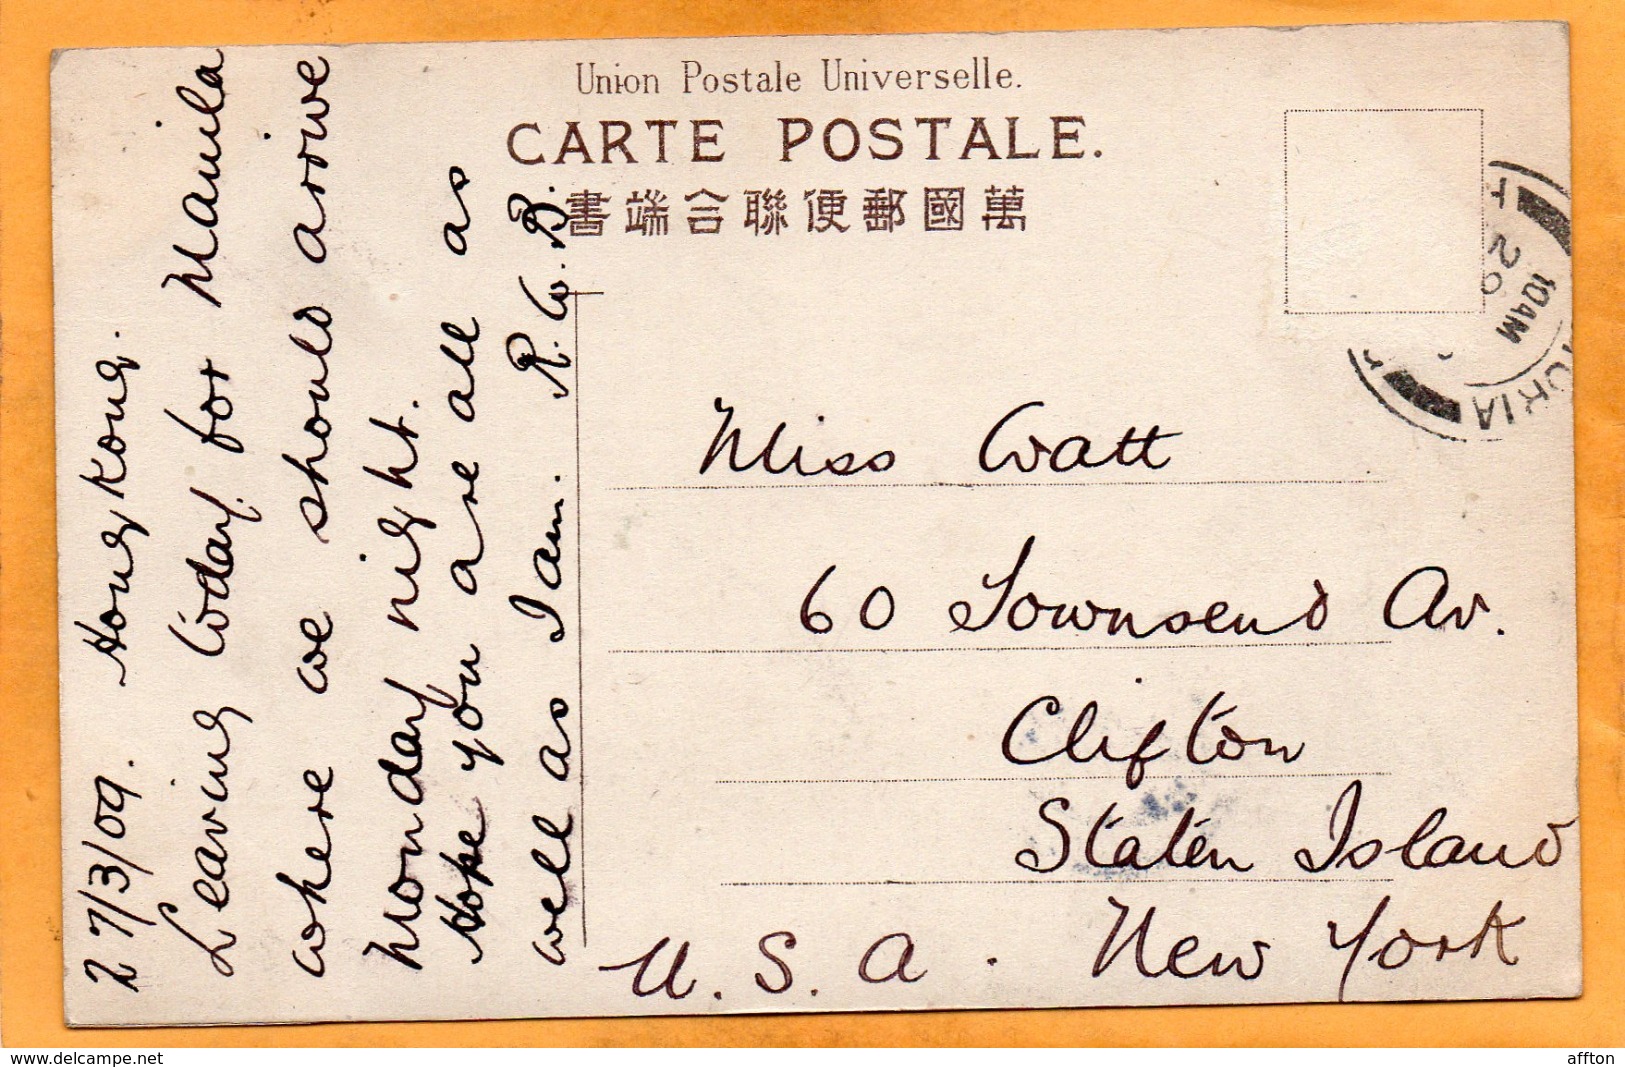 Union Postale Universelle.
CARTE POSTALE.
書端合聯便郵國萬
27/3/09. Hong Kong.
Leaving Today for Manila
where we should arrive
Monday night.
Hope you are all as
well as I am. R.W.B.
Miss Watt
60 Townsend Av.
Clifton
Staten Island
U.S.A. New York
10 AM
20
delcampe.net
affton